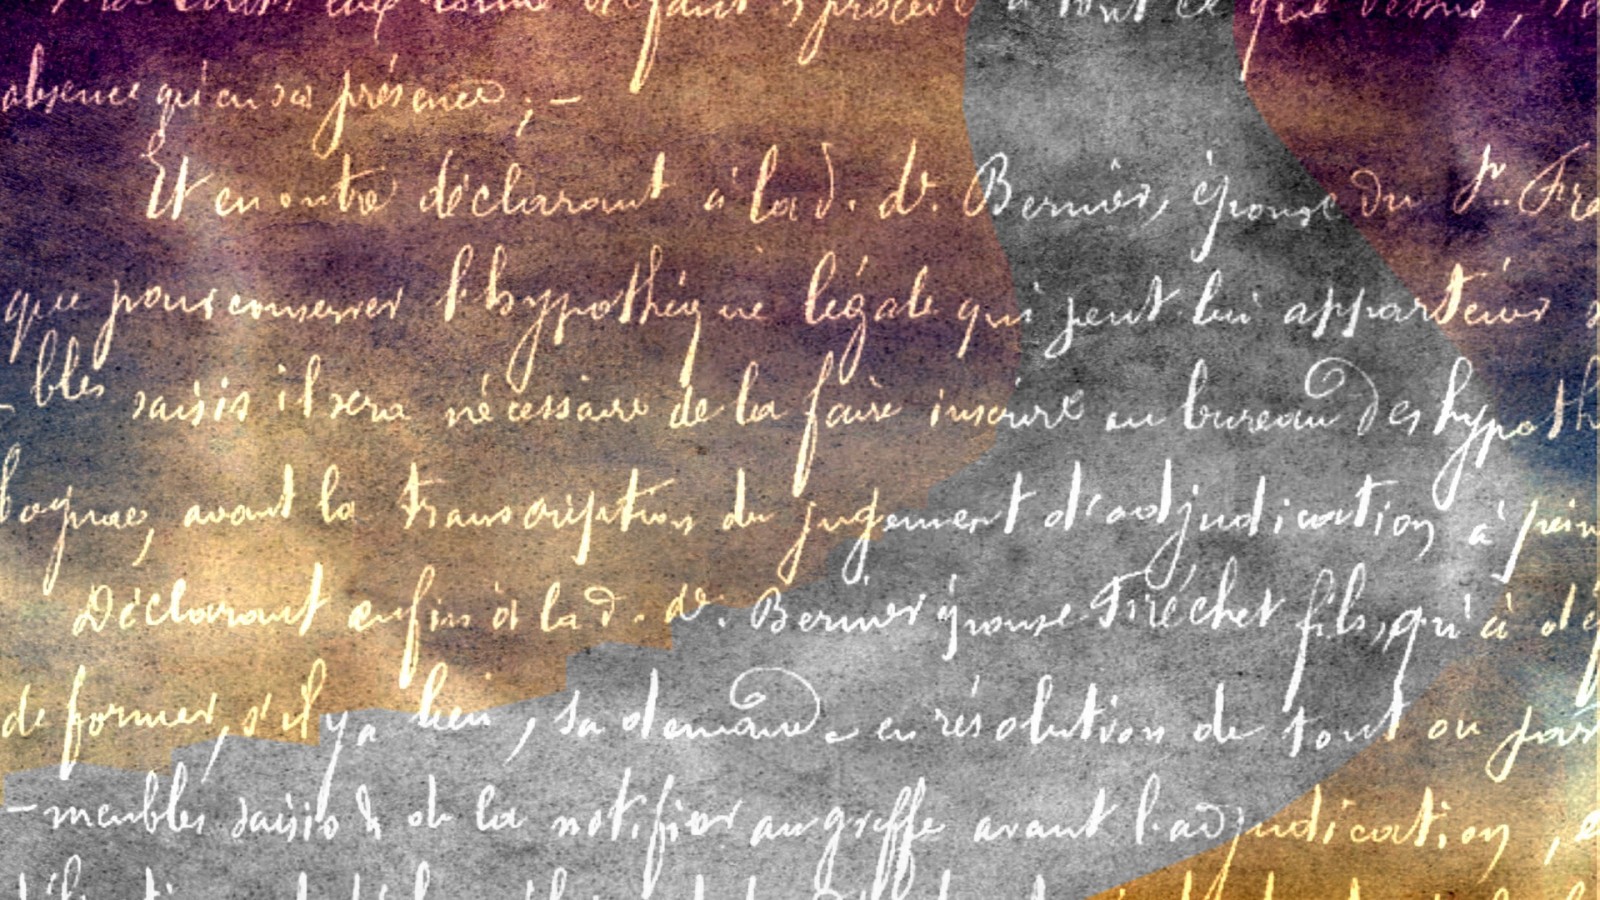 absence qu'en sa présence ; —
Et en outre déclarant à la d. de. Bernier, épouse du Sr.. Fré
que pour conserver l'hypothèque légale qui peut lui appartenir s
- bles saisis il sera nécessaire de la faire inscrire au bureau des hypoth
logne, avant la transcription du jugement d'adjudication à pein
Déclarant enfin à la d. de. Bernier épouse Fréchet fils, qu'à dé
de former, s'il y a lieu, sa demande en résolution de tout ou par
- meubles saisis & de la notifier au greffe avant l'adjudication,